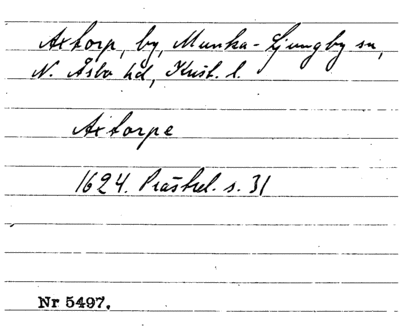 Axtorp, by, Munka-Ljungby sn,
N. Åsbo hd, Krist. l.
Axtorpe
1624. Prästrel. s. 31
Nr 5497.